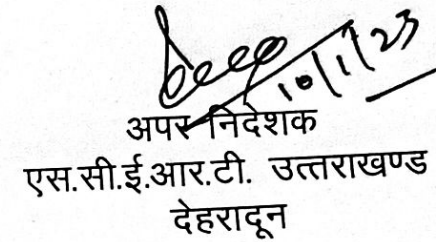 10/1/23
अपर निदेशक
एस.सी.ई.आर.टी. उत्तराखण्ड
देहरादून